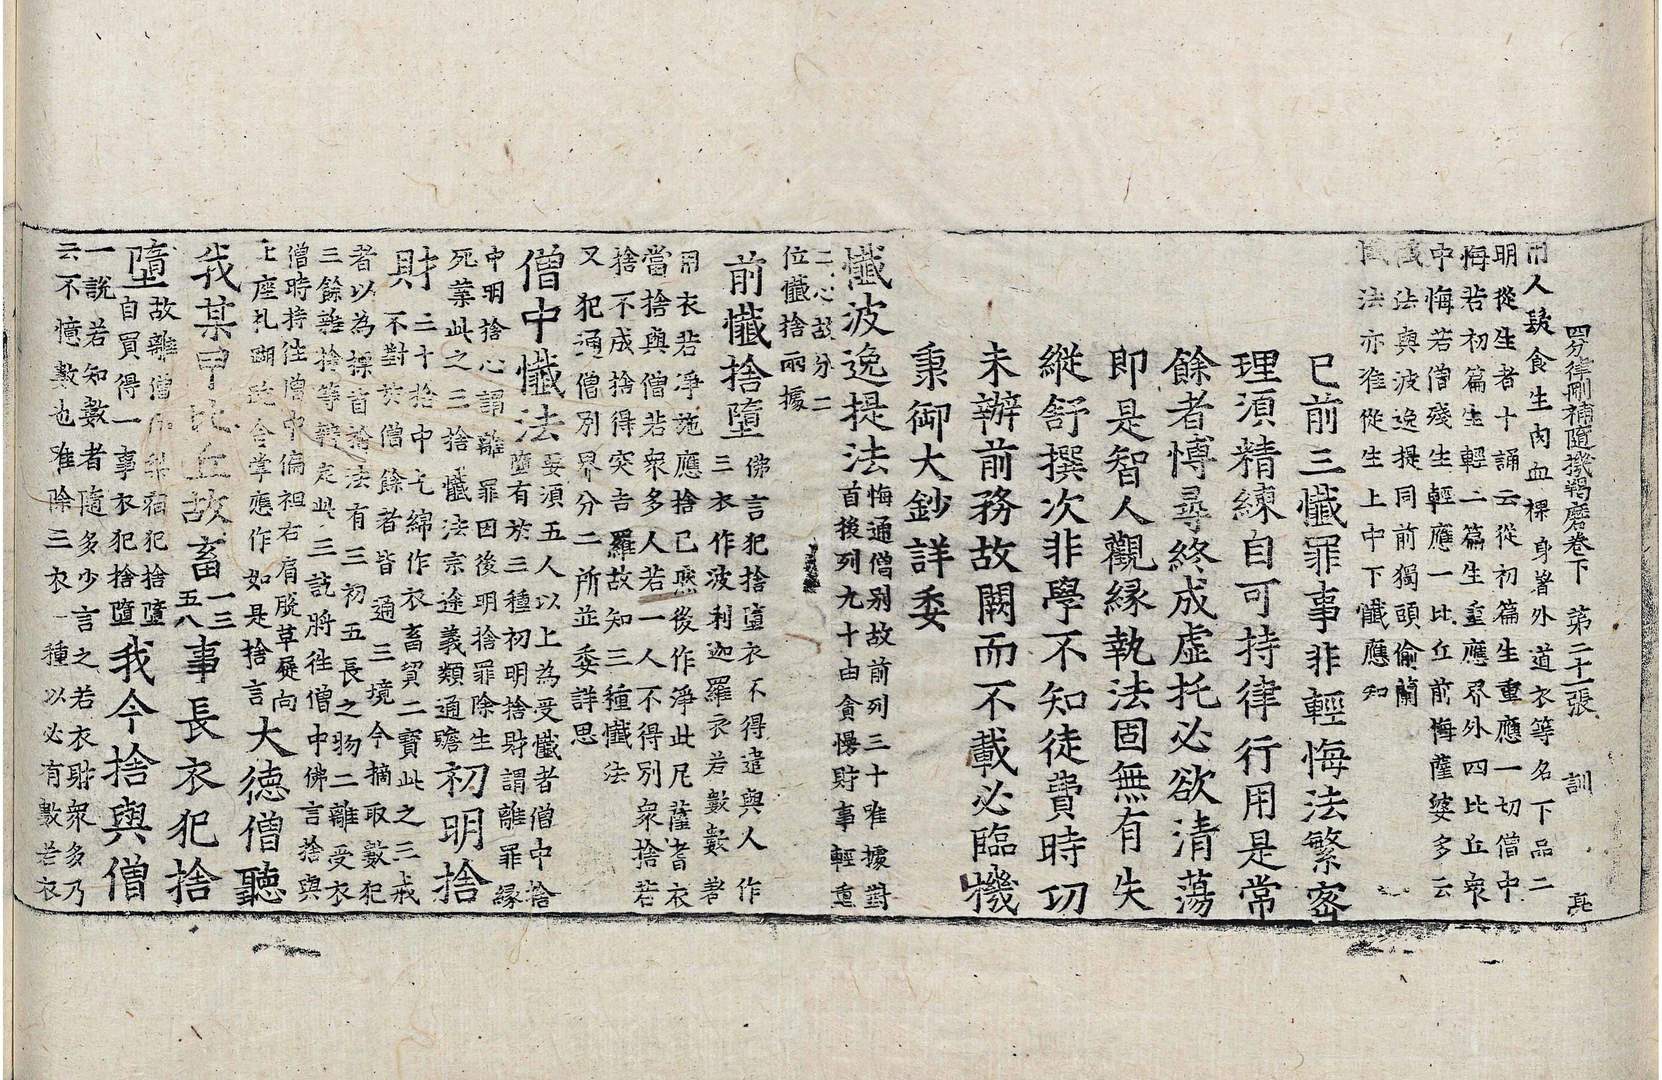 四分律刪補隨機羯磨卷下 第二十一張 訓
用人髮食生肉血裸身著外道衣等名下品二
明從生者十誦云從初篇生重應一切僧中
悔若初篇生輕二篇生重應界外四比丘衆
中悔若僧殘生輕應一比丘前悔薩婆多云
法與波逸提同前獨頭偷蘭
法亦准從生上中下懺應知
已前三懺罪事非輕悔法繁密
理須精練自可持律行用是常
餘者博尋終成虛托必欲清蕩
即是智人觀縁執法固無有失
縱舒撰次非學不知徒費時功
未辦前務故闕而不載必臨機
秉御大鈔詳委
懺波逸提法悔通僧別故前列三十唯據對
首後列九十由貪慢財事輕重
二心故分二
位懺捨兩據
前懺捨墮佛言犯捨墮衣不得遣與人作
三衣作波利迦羅衣若數數著
用衣若淨施應捨已然後作淨此尼薩耆衣
當捨與僧若衆多人若一人不得別衆捨若
捨不成捨得突吉羅故知三種懺法
又犯通僧別界分二所並委詳思
僧中懺法要須五人以上為受懺者僧中捨
墮有於三種初明捨財謂離罪縁
中明捨心謂離罪因後明捨罪除生
死業此之三捨懺法宗途義類通瞻初明捨
財二十捨中乞綿作衣畜貿二寶此之三戒
不對於僧餘者皆通三境今摘取數犯
者以為標首捨法有三初五長之物二離受衣
三餘雜捨等辨定此三說將往僧中佛言捨與
僧時持往僧中偏袒右肩脫革屣向
上座礼胡跪合掌應作如是捨言大德僧聽
我某甲比丘故畜一三五八事長衣犯捨
墮故離僧伽梨宿犯捨墮
自買得一事衣犯捨墮我今捨與僧
一說若知數者隨多少言之若衣財衆多乃
云不憶數也唯除三衣一種以必有數若衣